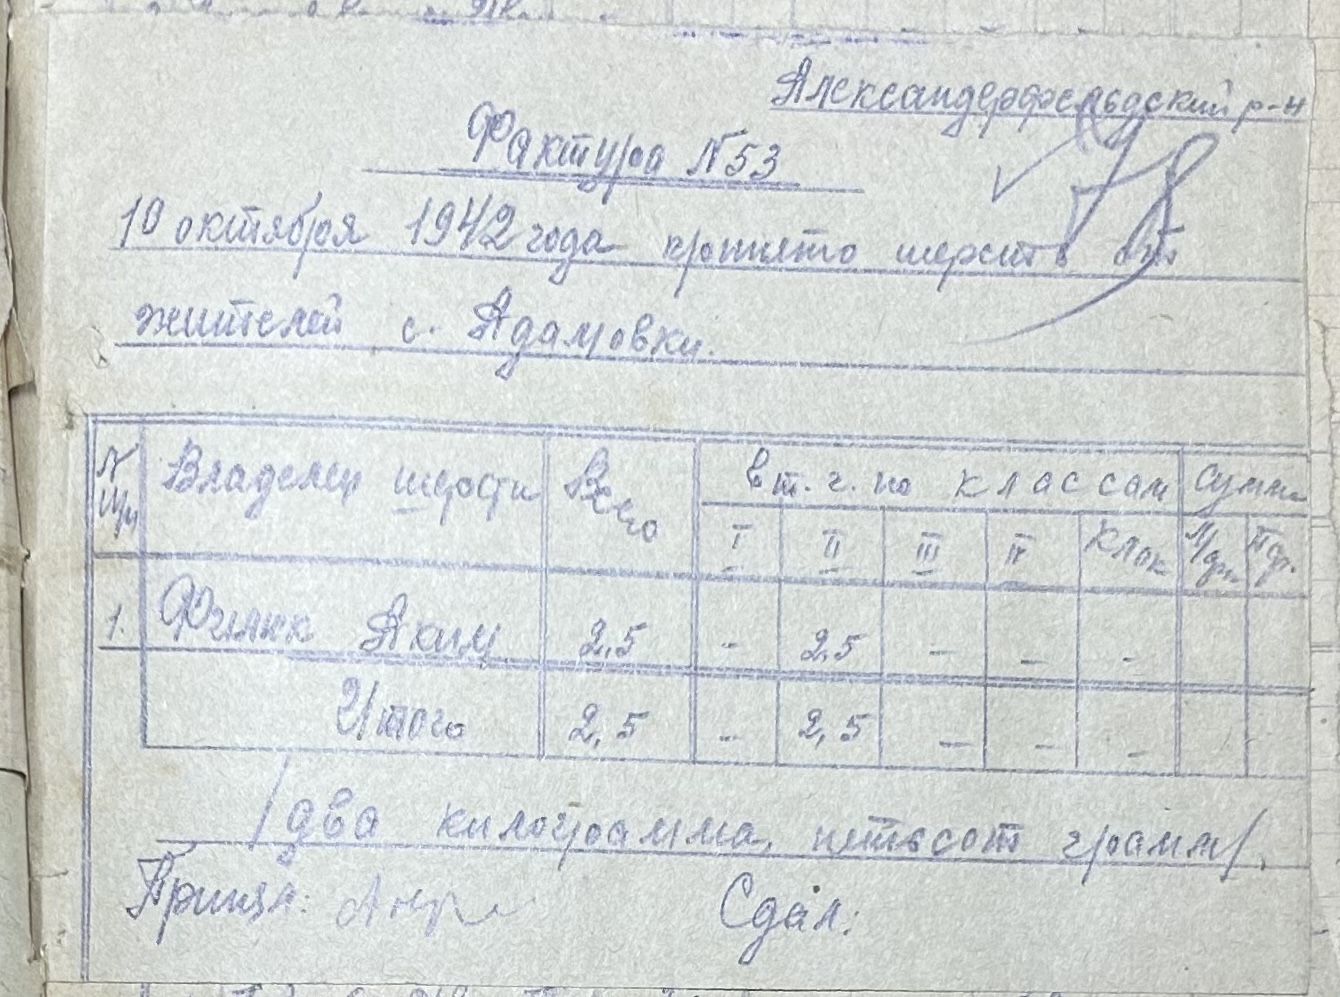 Александерфельдский р-н
Фактура №53
10 октября 1942 года принято шерсть от
жителей с. Адамовки.
№ п/п Владелец шерсти Всего в т. ч. по классам сумма
I II III IV Клок
1. Филик Аким 2,5 - 2,5 - - -
Итого 2,5 - 2,5 - - -
/два килограмма, пятьсот грамм/.
Принял: Сдал: